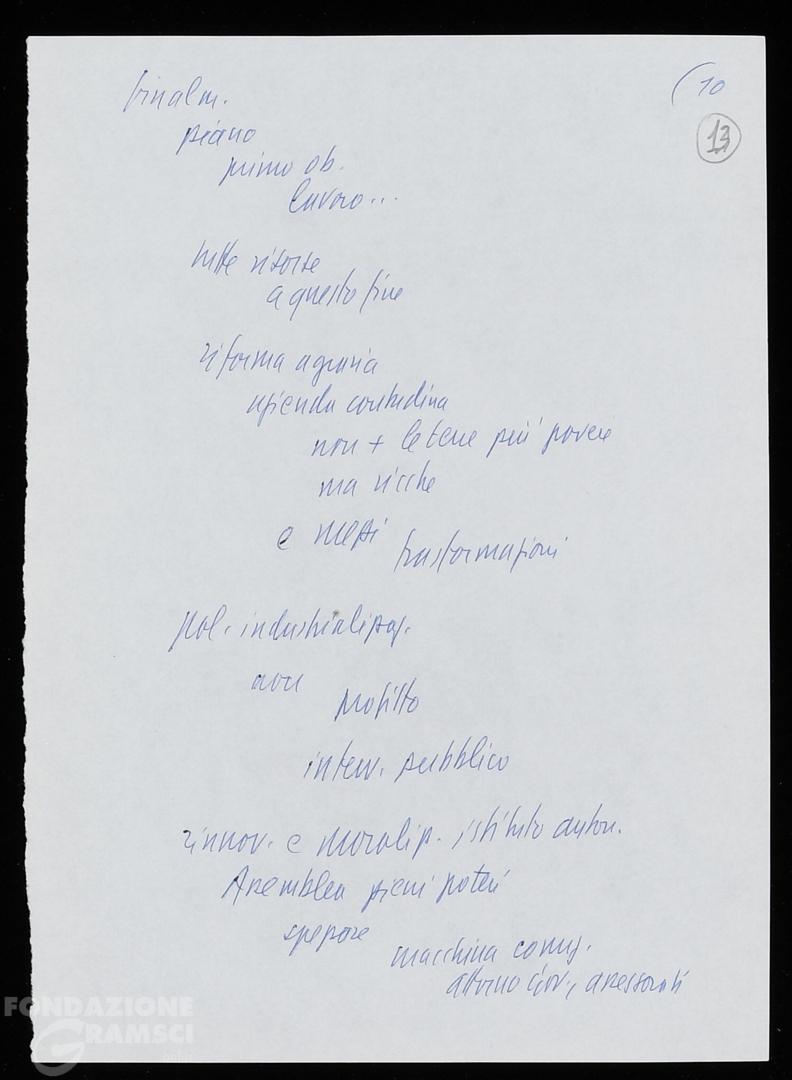 (10
13
finalm.
piano
primo ob.
lavoro...
tutte risorse
a questo fine
riforma agraria
azienda contadina
non + le terre più povere
ma ricche
e mezzi
trasformazioni
pol. industrializzaz.
non
profitto
interv. pubblico
rinnov. e moralizz. istituto auton.
Assemblea pieni poteri
spezzare
macchina
attorno Gov., assessorati
FONDAZIONE
GRAMSCI